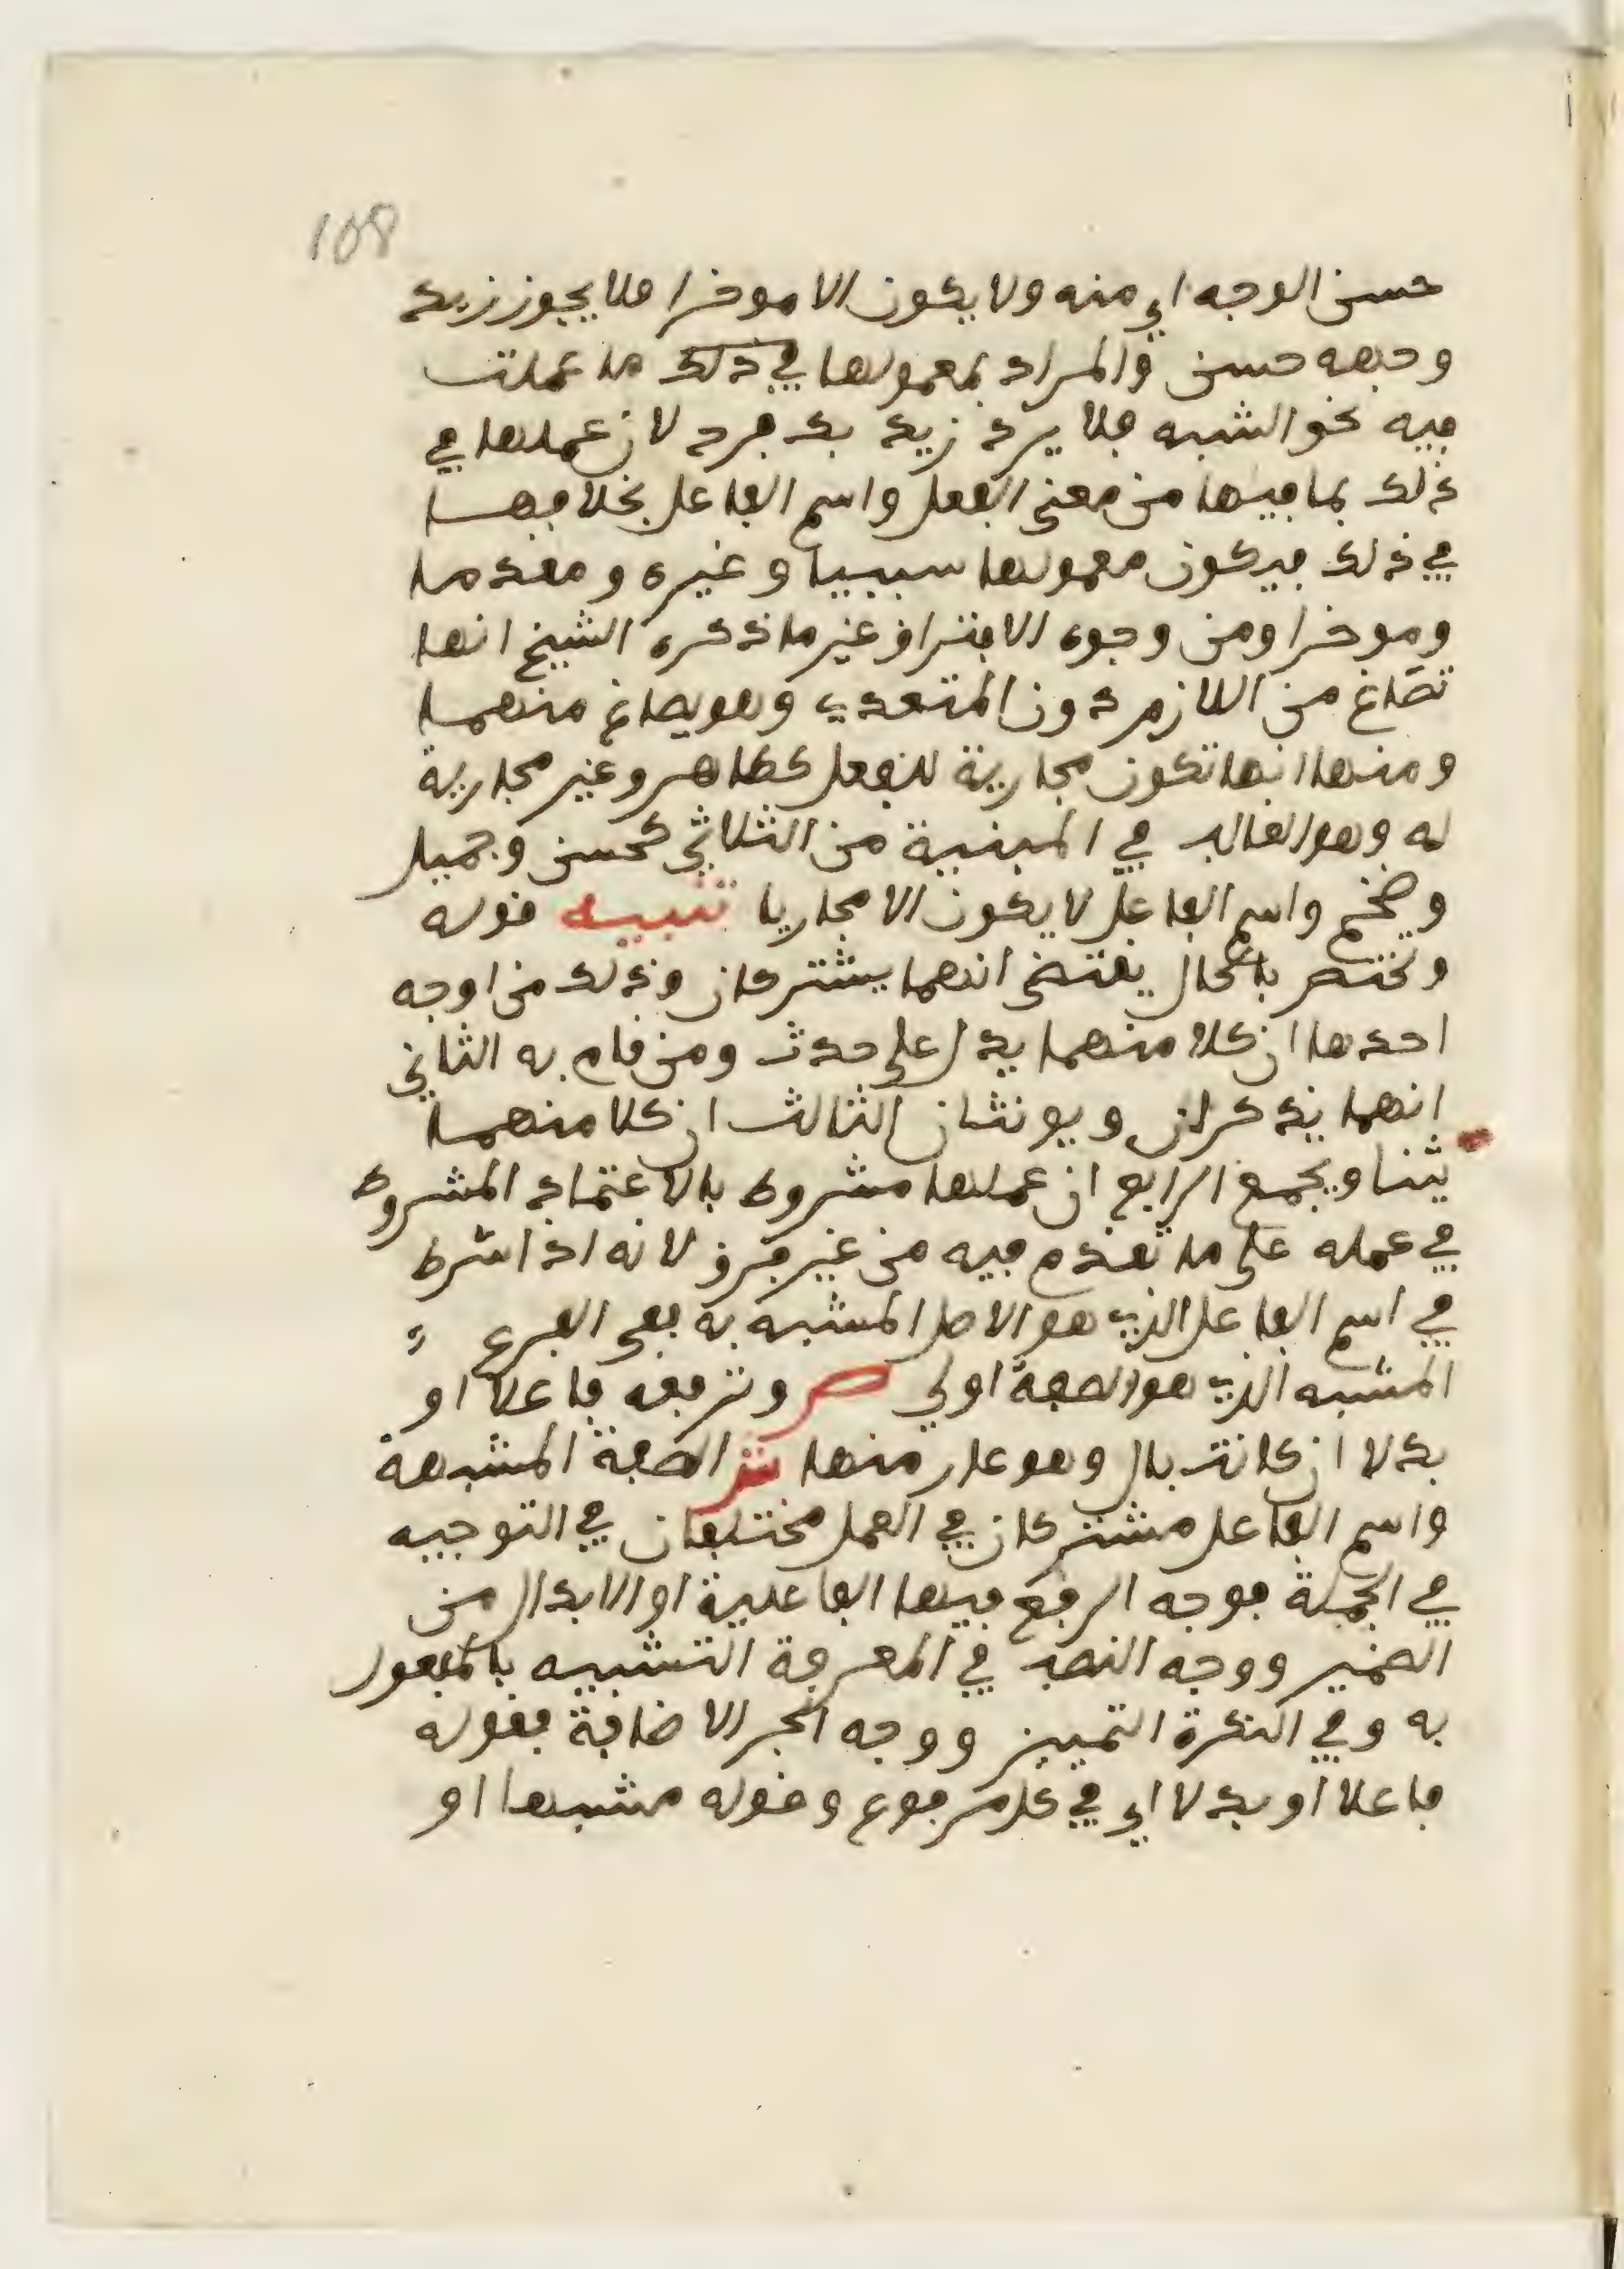 108
حسن الوجه اي منه ولا يكون الا موخرا فلا يجوز زيد
وجهه حسن والمراد بمعمولها في ذلك ما عملت
فيه نحو الشبه فلا يرد زيد بك فرح لان عملها في
ذلك بما فيها من معنى الفعل واسم الفاعل بخلافهـــا
في ذلك فيركون معمولها سببيا وغيره ومقدما
وموخرا ومن وجوه الافتراق غير ما ذكره الشيخ انها
تصاغ من اللازم دون المتعدي وهو يصاغ منهمــا
ومنها انها تكون مجارية للفعل كطاهر وغير مجارية
له وهو الغالب في المبنية من الثلاثي كحسن وجميل
وضخم واسم الفاعل لا يكون الا مجاريا تنبيـــه قوله
وتختص بالحال يقتضي انهما يشتركان وذلك من اوجه
احدها ان كلا منهما يدل على حدث ومن قام به الثاني
انهما يذكران ويونثان الثالث ان كلا منهمــا
يثنا ويجمع الرابع ان عملها مشروط بالاعتماد المشروط
في عمله على ما تقدم فيه من غير فرق لانه اذا شرط
في اسم الفاعل الذي هو الاصل المشبه به ففي الفرع
المشبه الذي هو الصفة اولى ص وترفعه فاعلا او
بدلا ان كانت بال وهو عار منها ش الصفة المشبهة
واسم الفاعل مشتركان في العمل مختلفان في التوجيه
في الجملة فوجه الرفع فيها الفاعلية او الابدال من
الضمير ووجه النصب في المعرفة التشبيه بالمفعول
به وفي النكرة التمييز ووجه الجر الاضافة فقوله
فاعلا او بدلا اي في كل مرفوع وقوله مشبها او